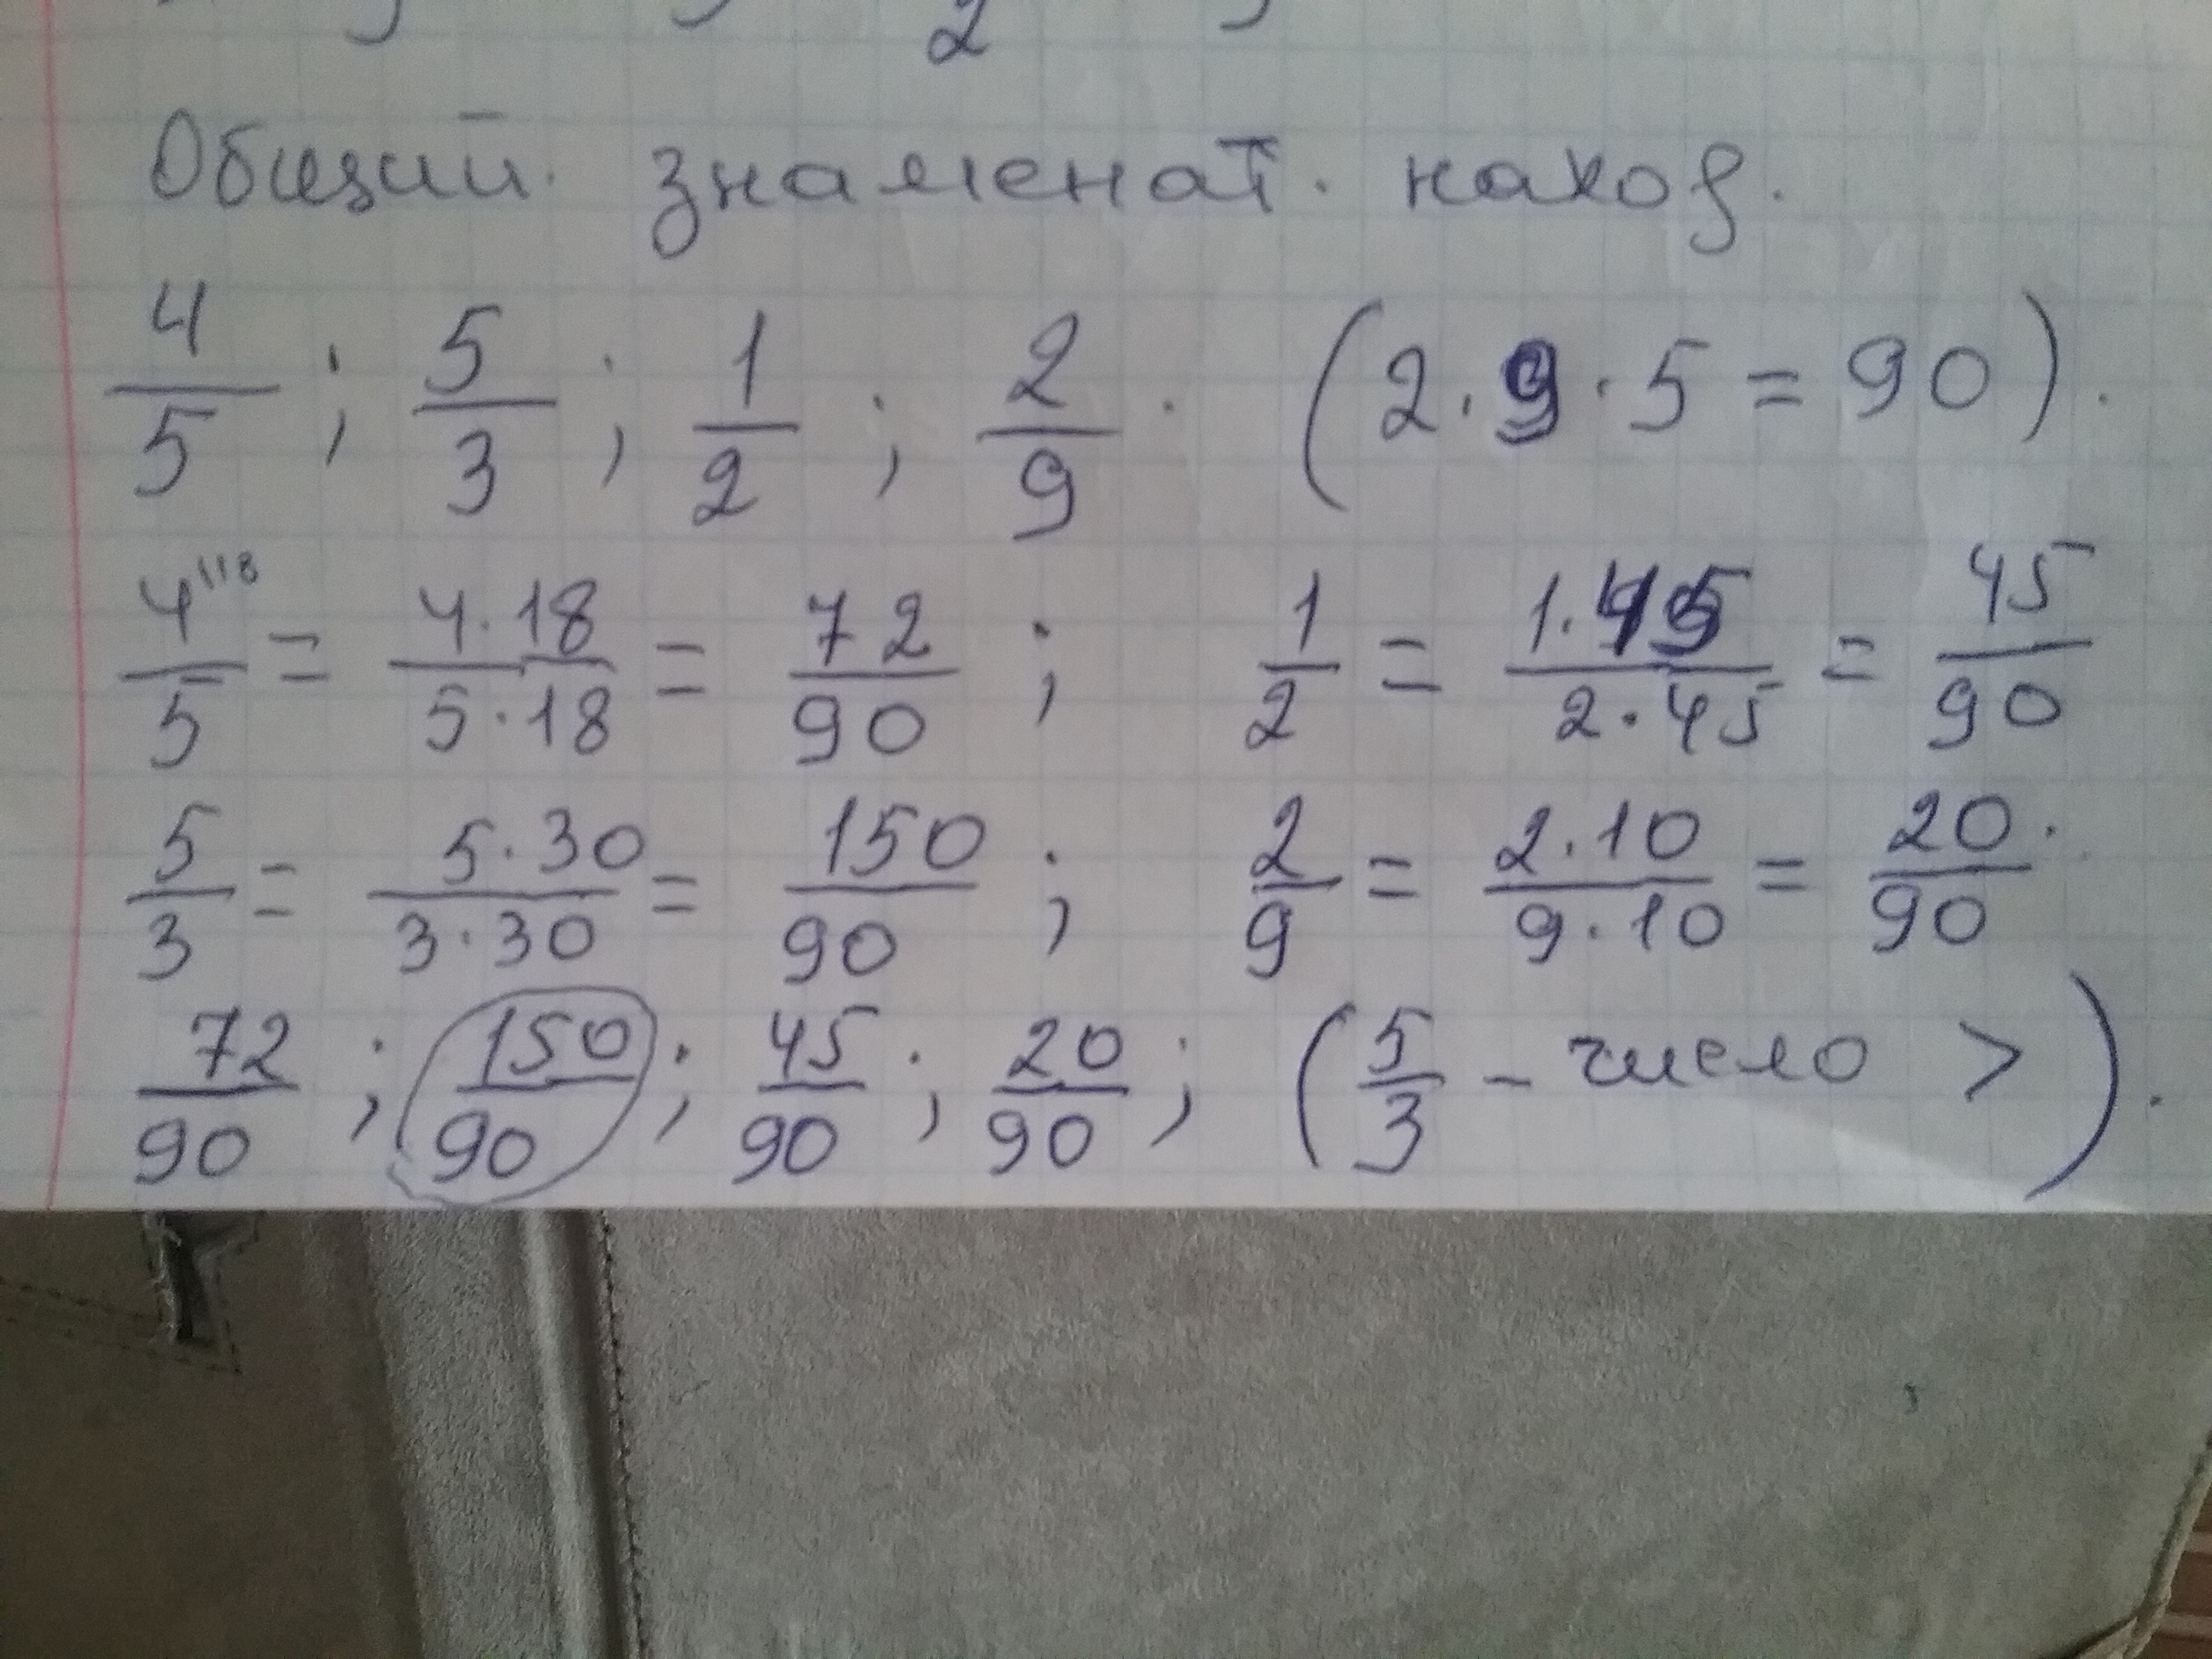 2
Общий знаменат. наход.
4/5 ; 5/3 ; 1/2 ; 2/9 . (2·9·5=90).
4/5 = 4·18/5·18 = 72/90 ; 1/2 = 1·45/2·45 = 45/90
5/3 = 5·30/3·30 = 150/90 ; 2/9 = 2·10/9·10 = 20/90.
72/90 ; 150/90 ; 45/90 ; 20/90 ; (5/3 - число >).